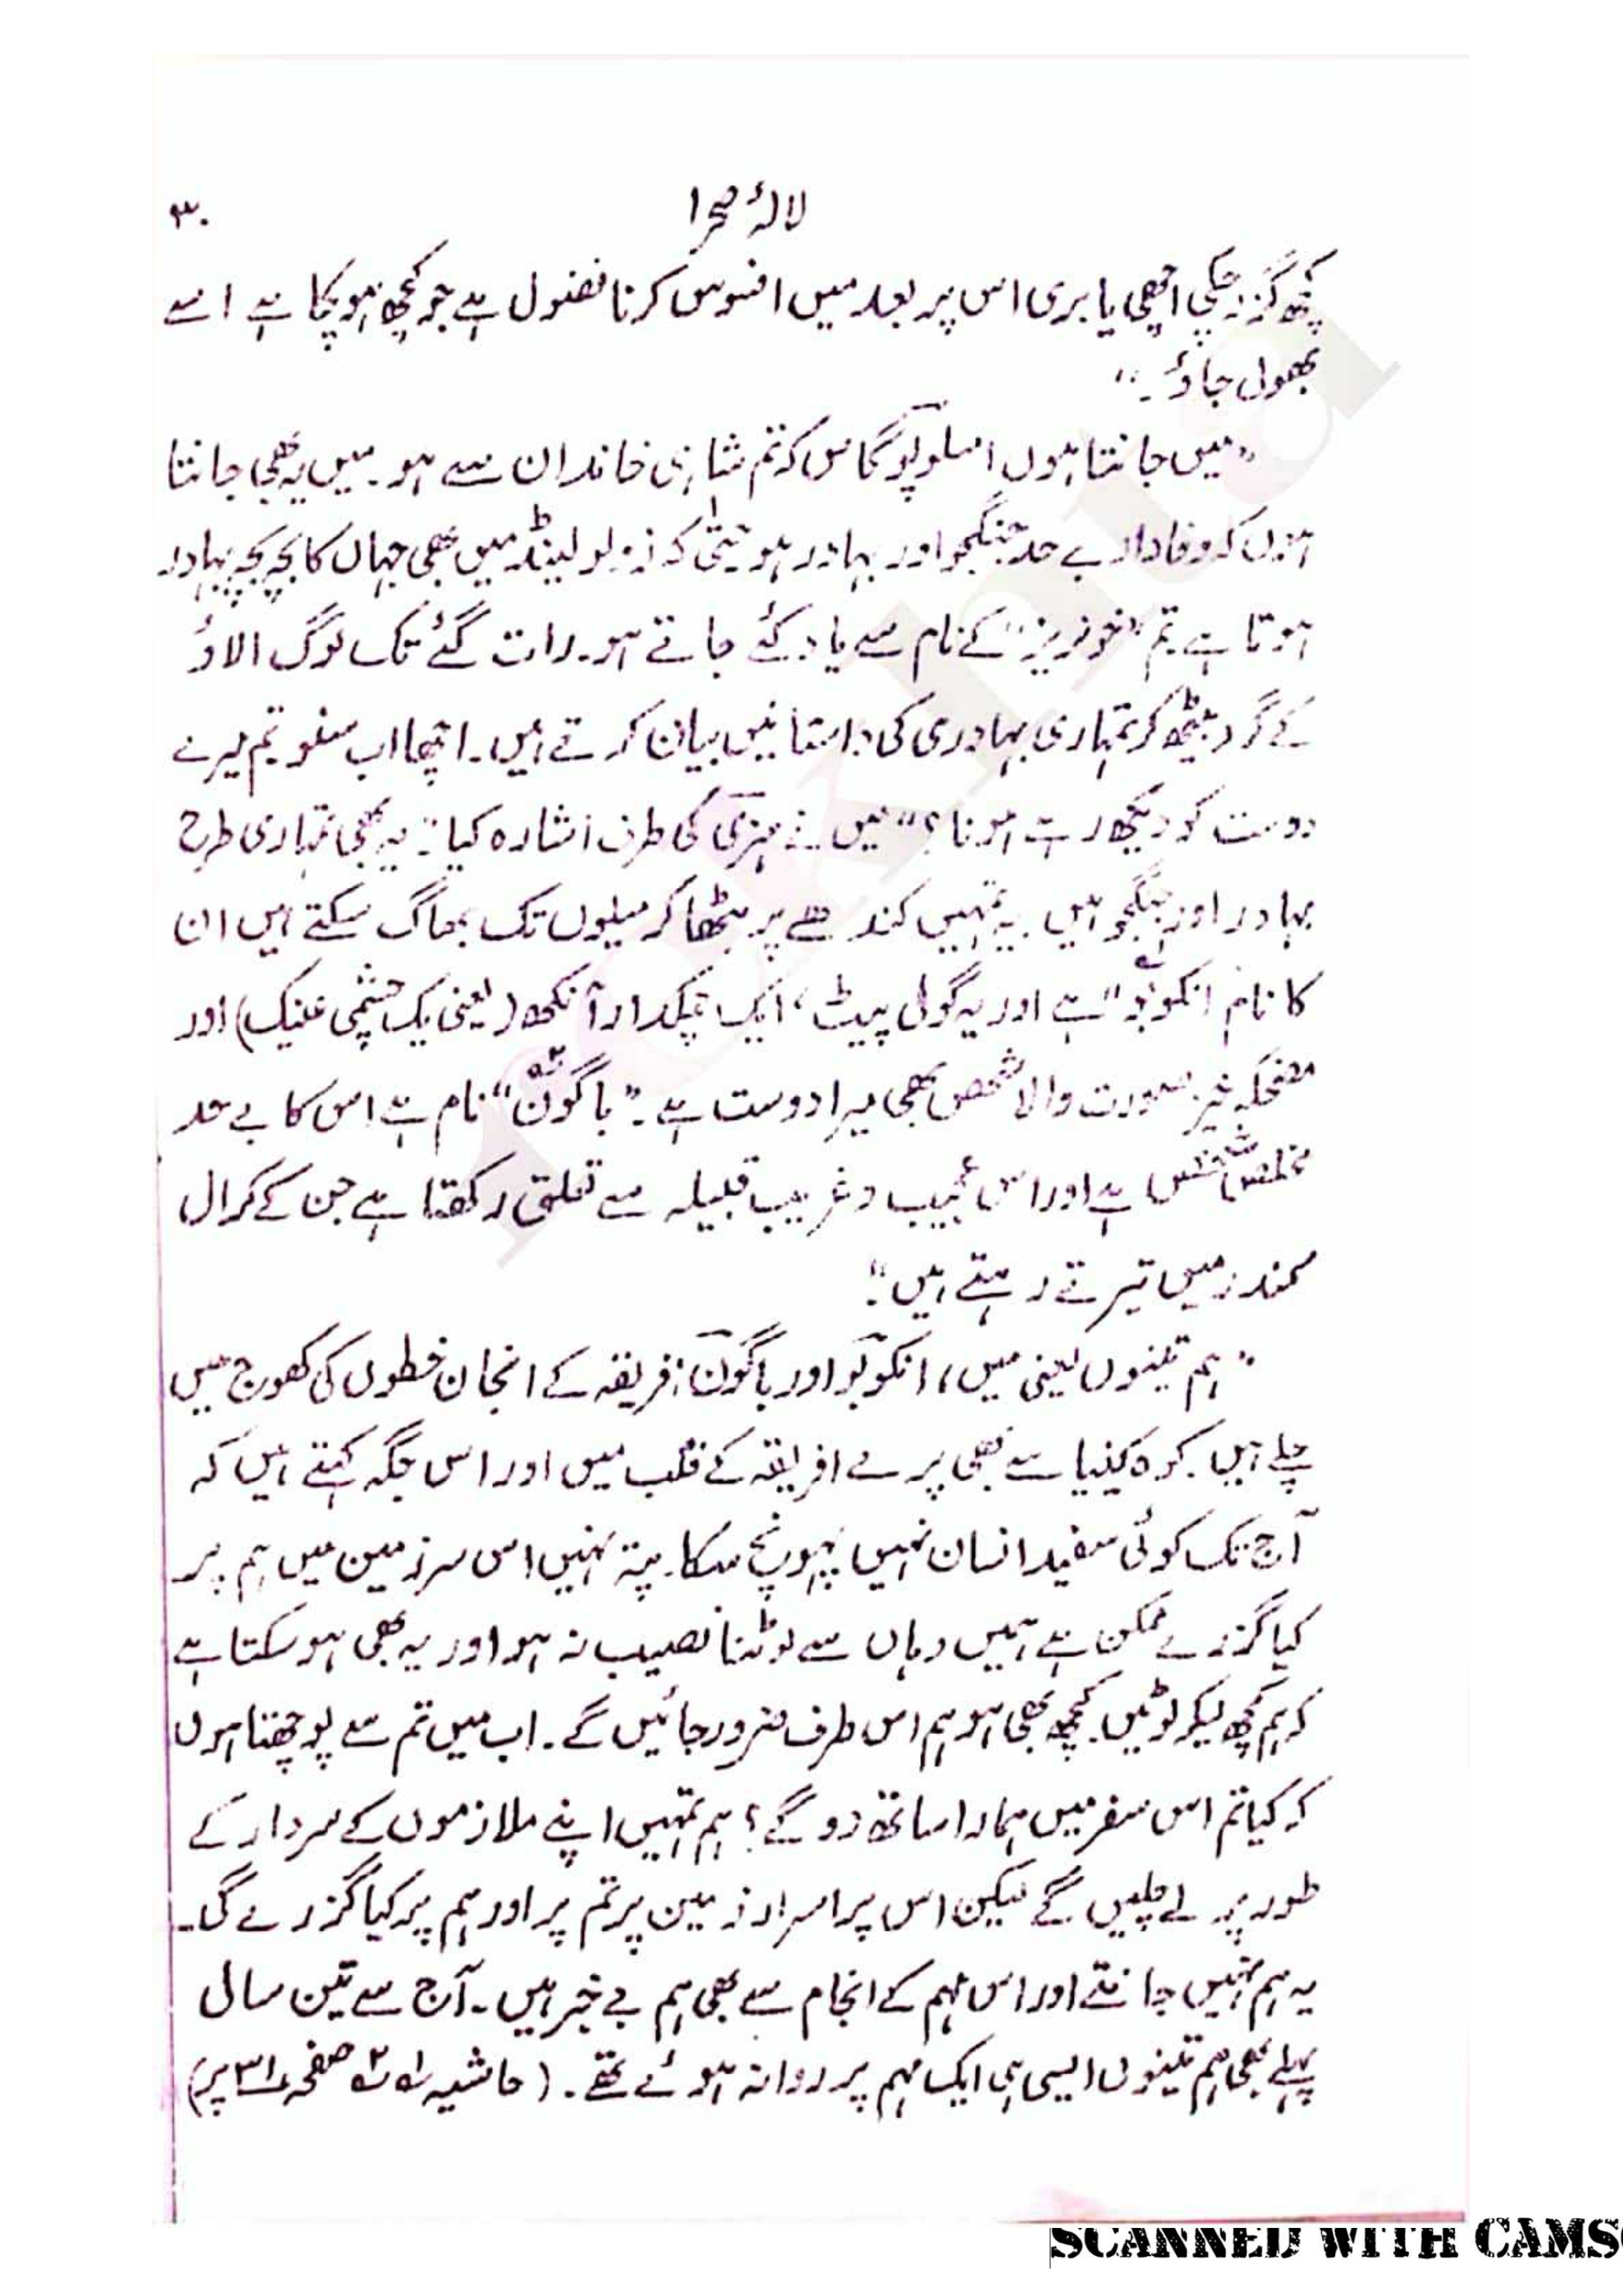 لالۂ صحرا ۳۰
کچھ گزر چکی اچھی یا بری اس پر بعد میں افسوس کرنا فضول ہے جو کچھ ہو چکا ہے اسے
بھول جاؤ۔"
"میں جانتا ہوں امسلوپوگاس کہ تم شاہی خاندان سے ہو۔ میں یہ بھی جانتا
ہوں کہ وفادار بے حد جنگجو اور بہادر ہو حتیٰ کہ زولو لینڈ میں بھی جہاں کا بچہ بچہ بہادر
ہوتا ہے تم "خونریز" کے نام سے یاد کئے جاتے ہو۔ رات گئے تک لوگ الاؤ
کے گرد بیٹھ کر تمہاری بہادری کی داستانیں بیان کرتے ہیں۔ اچھا اب سنو تم میرے
دوست کو دیکھ رہے ہو نا؟" میں نے ہنری کی طرف اشارہ کیا: یہ بھی تمہاری طرح
بہادر اور جنگجو ہیں۔ یہ تمہیں کندھے پر بٹھا کر میلوں تک بھاگ سکتے ہیں ان
کا نام انکوبو" ہے اور یہ گول پیٹ، ایک چمکدار آنکھ (یعنی یک چشمی عینک) اور
مضحکہ خیز صورت والا شخص بھی میرا دوست ہے۔ "باگون" نام ہے اس کا بے حد
مخلص شخص ہے اور اس عجیب و غریب قبیلہ سے تعلق رکھتا ہے جن کے کرال
سمندر میں تیرتے رہتے ہیں"۔
"ہم تینوں یعنی میں، انکوبو اور باگون افریقہ کے انجان خطوں کی کھوج میں
چلے ہیں۔ کوہ کینیا سے بھی پرے افریقہ کے قلب میں اور اس جگہ کہتے ہیں کہ
آج تک کوئی سفید انسان نہیں پہونچ سکا۔ پتہ نہیں اس سرزمین میں ہم پر
کیا گزرے ممکن ہے ہمیں وہاں سے لوٹنا نصیب نہ ہو اور یہ بھی ہو سکتا ہے
کہ ہم کچھ لیکر لوٹیں۔ کچھ بھی ہو ہم اس طرف ضرور جائیں گے۔ اب میں تم سے پوچھتا ہوں
کہ کیا تم اس سفر میں ہمارا ساتھ دو گے؟ ہم تمہیں اپنے ملازموں کے سردار کے
طور پر لے چلیں گے لیکن اس پراسرار زمین پر تم پر اور ہم پر کیا گزرے گی۔
یہ ہم نہیں جانتے اور اس مہم کے انجام سے بھی ہم بے خبر ہیں۔ آج سے تین سال
پہلے بھی ہم تینوں ایسی ہی ایک مہم پر روانہ ہوئے تھے۔ (حاشیہ ۱ ۲ صفحہ ۳۱ پر)
SCANNED WITH CAMS